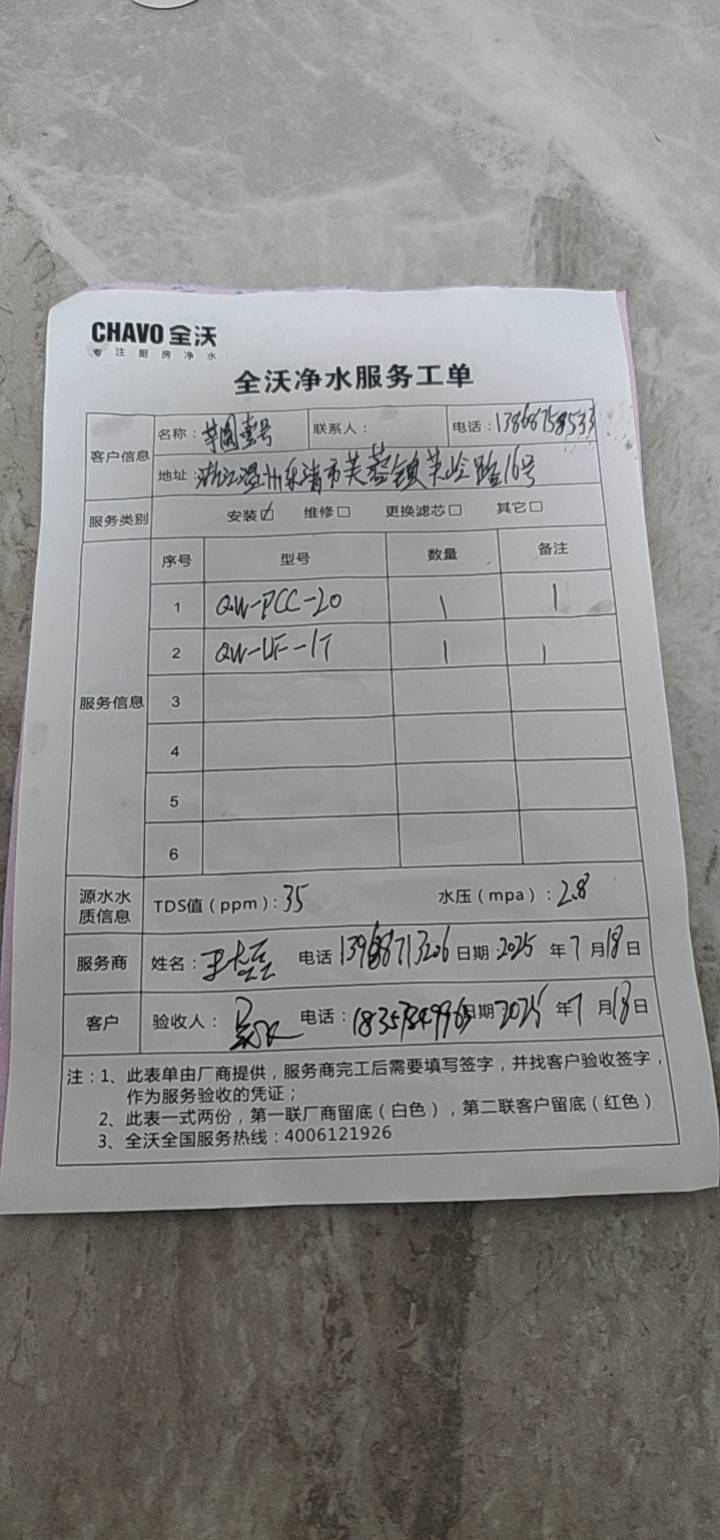 CHAVO 全沃
专注厨房净水
全沃净水服务工单
客户信息 名称： 壹号 联系人： 电话：13868758533
地址：浙江温州乐清市芙蓉镇芙岭路16号
服务类别 安装☑ 维修□ 更换滤芯□ 其它□
服务信息 序号 型号 数量 备注
1 QW-PCC-20 1 1
2 QW-UF-1T 1 1
3
4
5
6
源水水质信息 TDS值（ppm）：35 水压（mpa）：2.8
服务商 姓名：王 电话 13968713206 日期 2025 年 7 月 18 日
客户 验收人： 电话： 日期 2025 年 7 月 18 日
注：1、此表单由厂商提供，服务商完工后需要填写签字，并找客户验收签字，
作为服务验收的凭证；
2、此表一式两份，第一联厂商留底（白色），第二联客户留底（红色）
3、全沃全国服务热线：4006121926